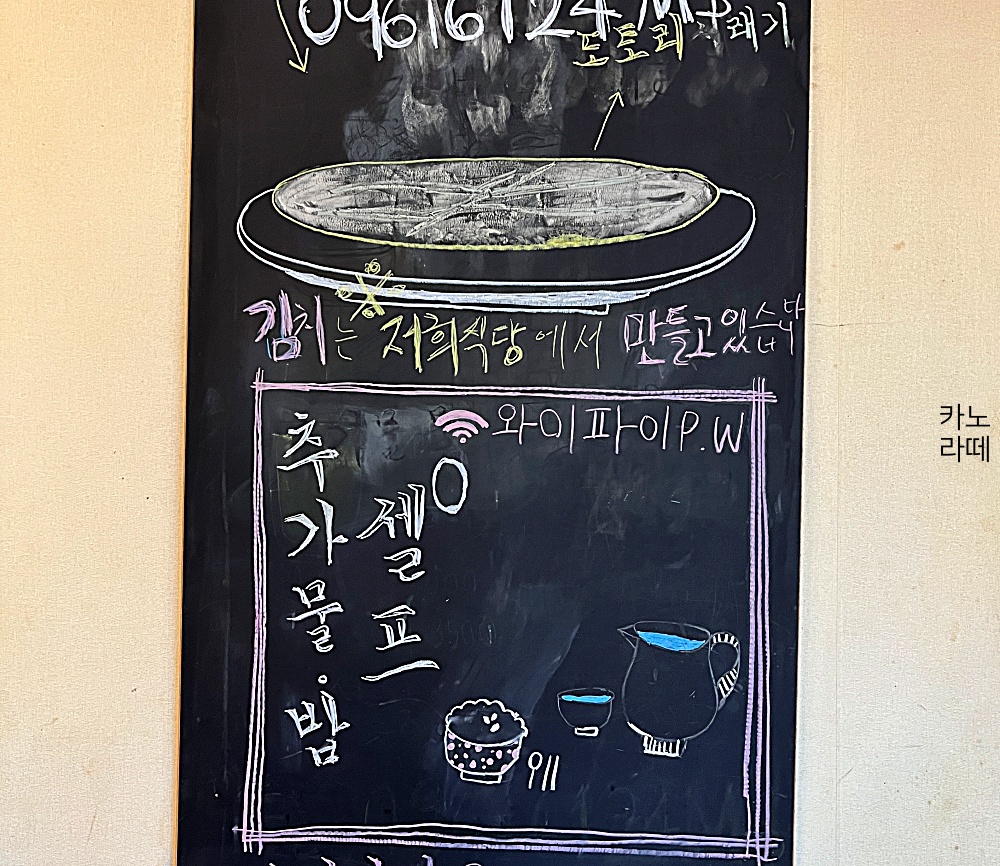 도토리
김치는 저희식당에서 만들고있습니다
와이파이P.W
0
추가물·밥
셀프
카노
라떼